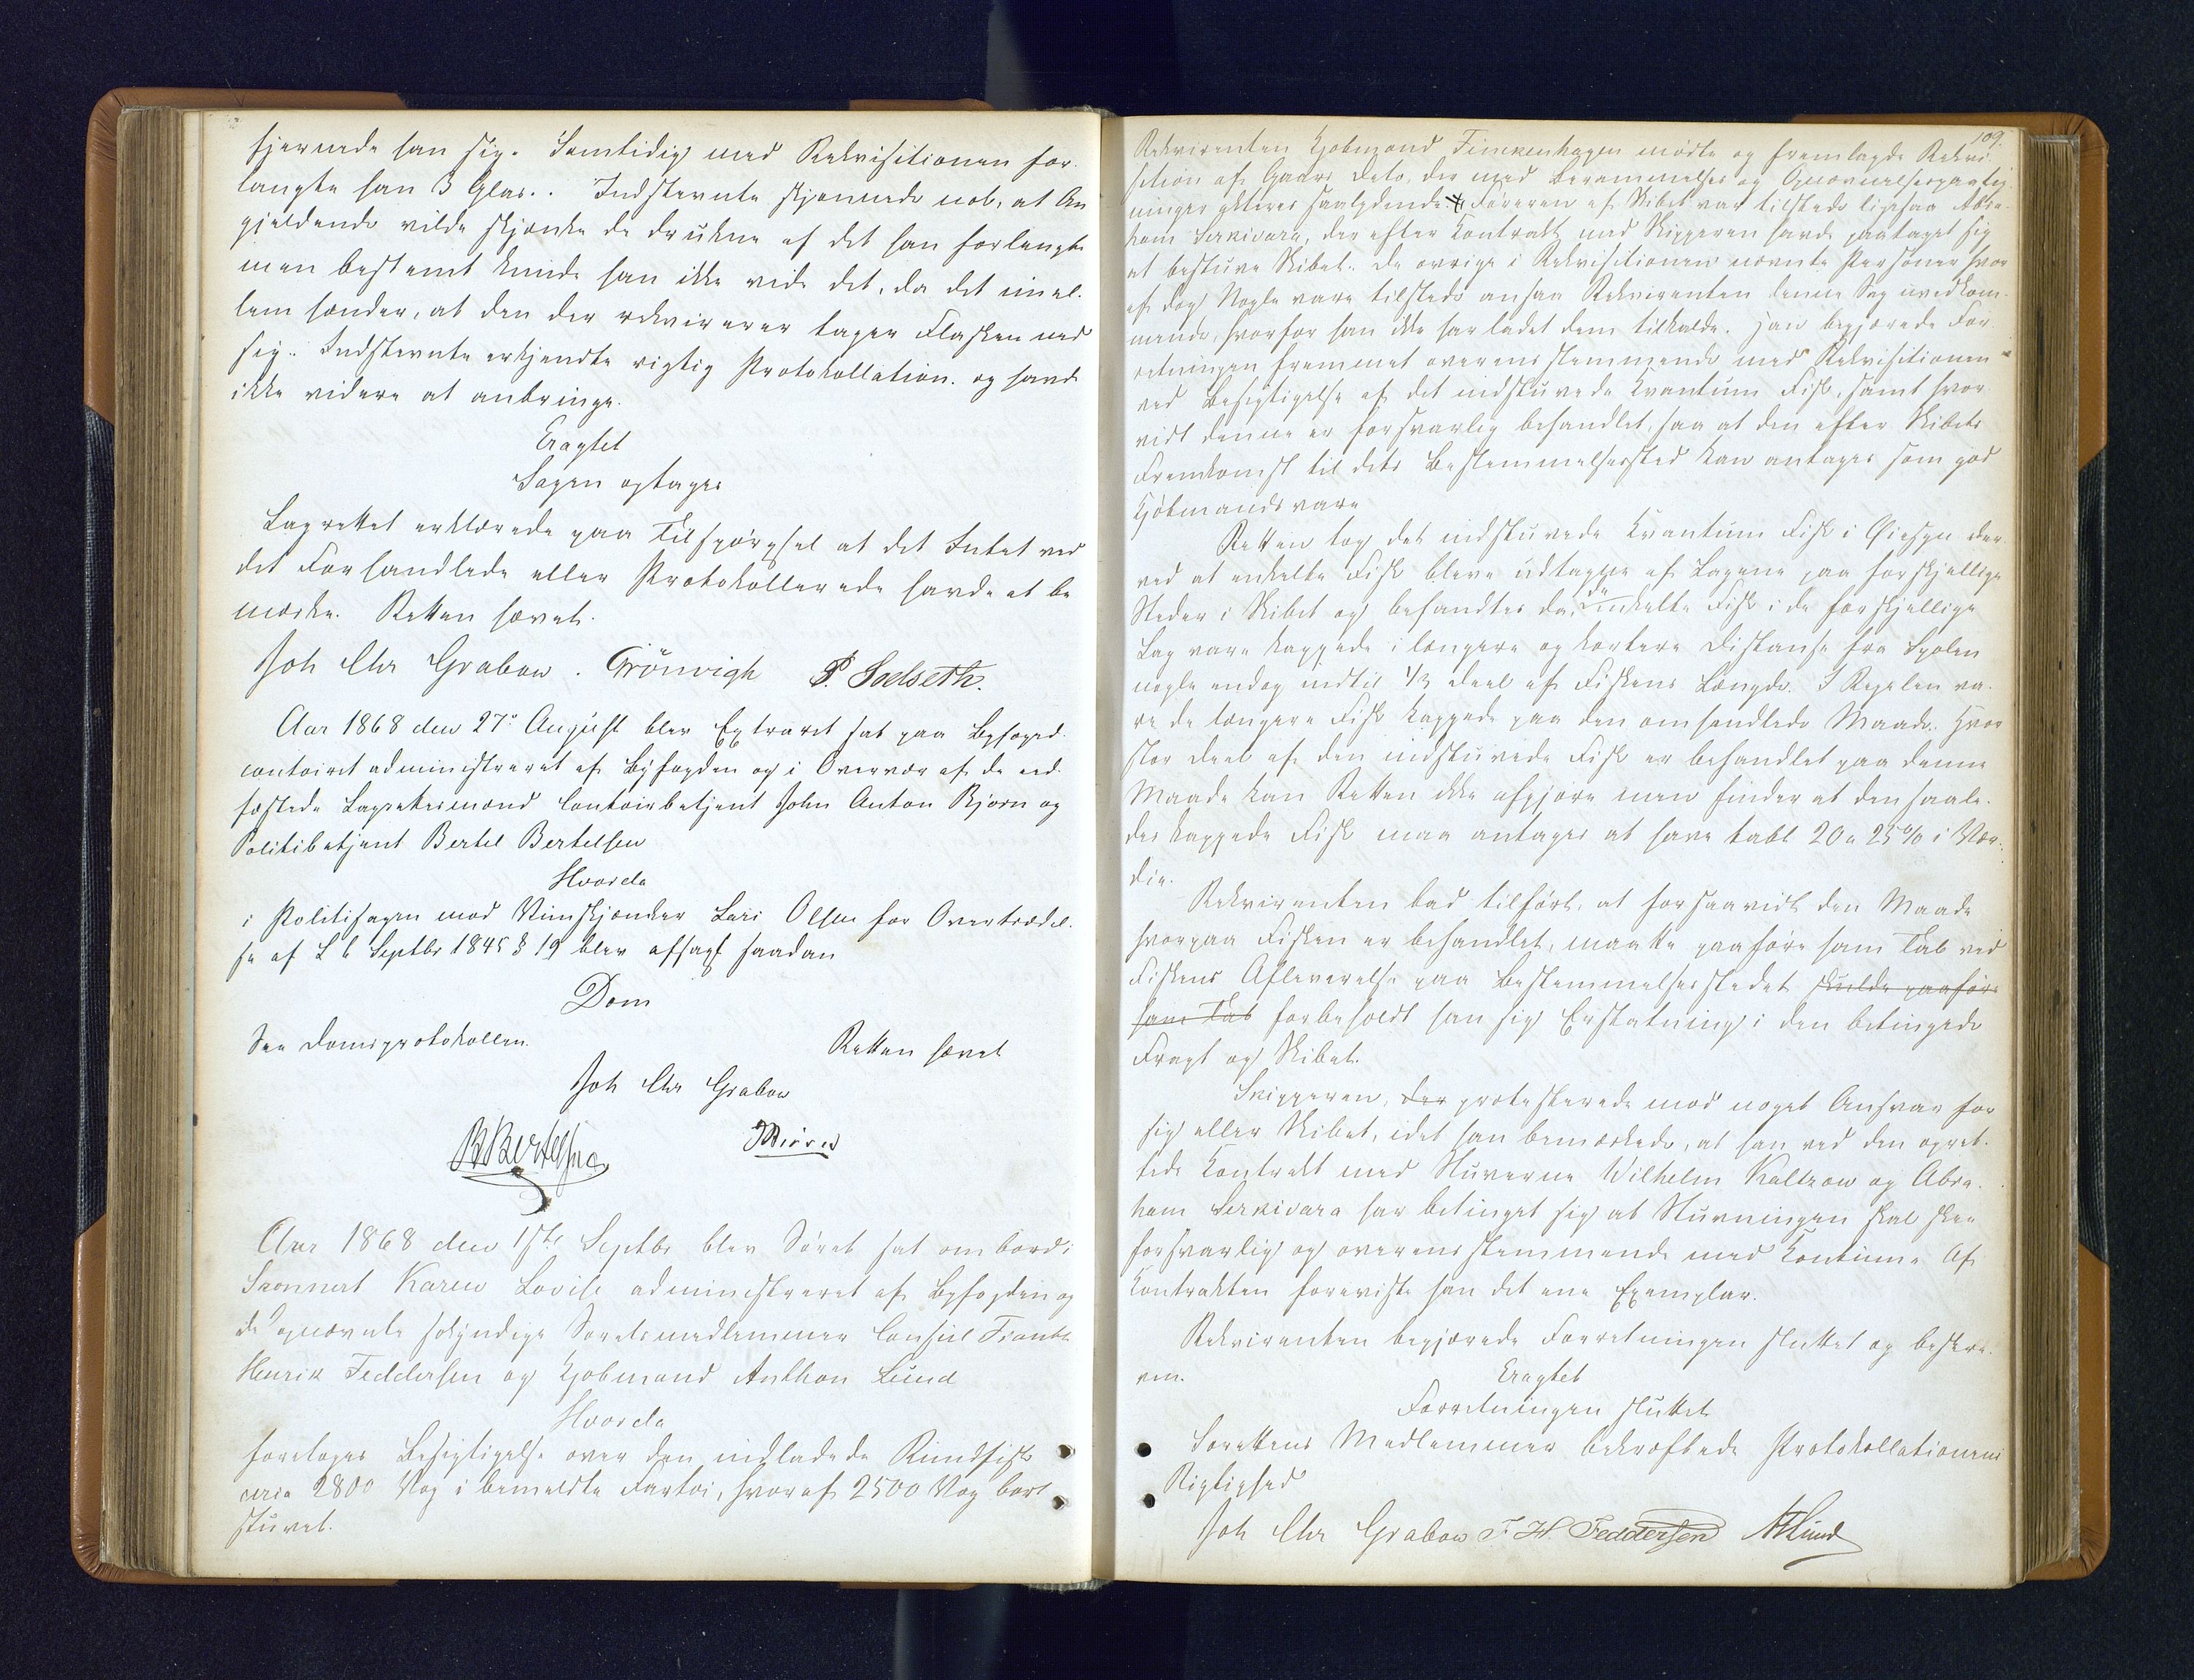 fjernede han sig. Samtidig med Rekvisitionen for-
langte han 3 Glas. Indstevnte skjønnede nok, at An
gjældende vilde skjænke de drukne af det han forlangte
men bestemt kunde han ikke vide det, da det imel-
lem hænder, at den der rekvirerer tager Flasken med
sig. Indstevnte erkjendte rigtig Protokollation og havde
ikke videre at anbringe.
Eragtet
Sagen optages
Lagrettet erklærede paa Tilspørgsel at det Intet ved
det Forhandlede eller Protokollerede havde at be
mærke. Retten hævet.
Joh Chr Grabow. Grönvigh P. Solseth.
Aar 1868 den 27de August blev Extraret sat paa Byfoged-
contoiret administreret af Byfogden og i Overvær af de eed-
fæstede Lagrettesmænd Contoirbetjent John Anton Bjørn og
Politibetjent Bertel Bertelsen
Hvorda
i Politisagen mod Viinskjænker Lars Olsen for Overtrædel-
se af L 6 Septbr 1845 § 19 blev afsagt saadan
Dom
See Domsprotokollen. Retten hævet
Joh Chr Grabow
B Bertelsen
Aar 1868 den 1ste Septbr blev Søret sat ombord i
Skonnert Karen Lovise administreret af Byfogden og
de opnævnte søkyndige Søretsmedlemmer Consul Frantz
Henrik Feddersen og Kjøbmand Anthon Lund
Hvorda
foretoges Besigtigelse over den indladede Rundfisk
circa 2800 Vog i bemeldte Fartøi, hvoraf 2500 Vog bort
stuvet.
109.
Rekvirenten Kjøbmand Finckenhagen mødte og fremlagde Rekvi-
sition af Gaars Dato, der med Berammelses og Opnævnelsespaateg-
ninger akteres saalydende # Føreren af Skibet var tilstede ligesaa Abra-
ham Serkivara, der efter Kontrakt med Skipperen havde paataget sig
at bestuve Skibet. De øvrige i Rekvisitionen nævnte Personer hvor
af dog Nogle vare tilstede ansaa Rekvirenten denne Sag uvedkom-
mende, hvorfor han ikke har ladet dem tilkalde. Han begjærede For
retningen fremmet overensstemmende med Rekvisitionen
ved Besigtigelse af det indstuvede Kvantum Fisk, samt hvor
vidt denne er forsvarlig behandlet, saa at den efter Skibets
Fremkomst til dets Bestemmelsessted kan antages som god
Kjøbmandsvare
Retten tog det indstuvede Kvantum Fisk i Øiesyn der-
ved at enkelte Fisk bleve udtagne af Lagene paa forskjellige
Steder i Skibet og befandtes da de enkelte Fisk i de forskjellige
Lag vare kappede i længere og kortere Distanse fra Spolen
nogle endog indtil 1/3 Deel af Fiskens Længde. I Regelen va-
re de længere Fisk kappede paa den omhandlede Maade. Hvor
stor Deel af den indstuvede Fisk er behandlet paa denne
Maade kan Retten ikke afgjøre men finder at den saale-
des kappede Fisk maa antages at have tabt 20 a 25 % i Vær-
die.
Rekvirenten bad tilført, at forsaavidt den Maade
hvorpaa Fisken er behandlet, maatte paaføre ham Tab ved
Fiskens Afleverelse paa Bestemmelsesstedet skulde paaføre
ham Tab forbeholdt han sig Erstatning i den betingede
Fragt og Skibet.
Skipperen, der protesterede mod noget Ansvar for
sig eller Skibet, idet han bemærkede, at han ved den opret-
tede Kontrakt med Stuverne Wilhelm Kaltzow og Abra-
ham Serkivara har betinget sig at Stuvningen skal skee
forsvarlig og overensstemmende med Koutume. Af
Kontrakten foreviste han det ene Exemplar.
Rekvirenten begjærede Forretningen sluttet og beskre-
ven.
Eragtet
Forretningen sluttet
Sørettens Medlemmer bekræftede Protokollationens
Rigtighed
Joh Chr Grabow F. H. Feddersen A Lund